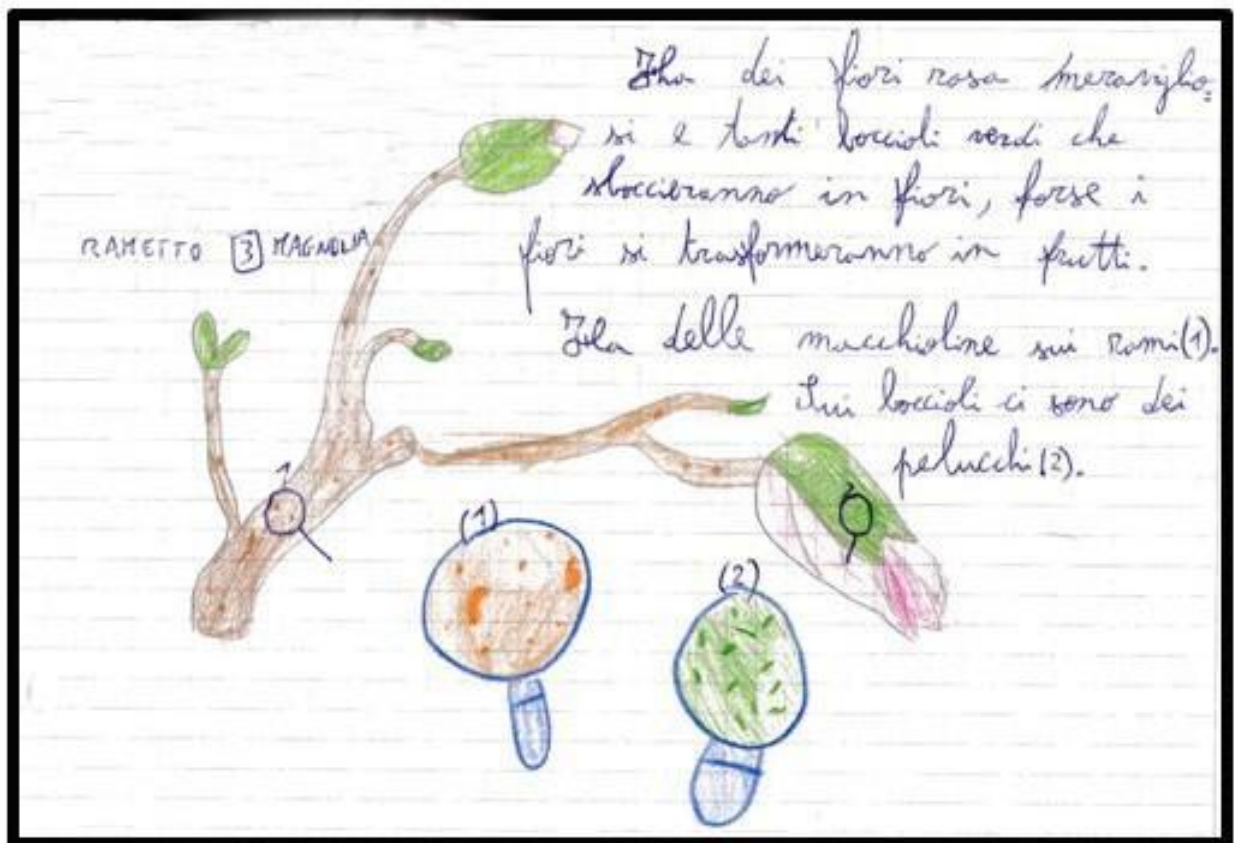 Ha dei fiori rosa meraviglio=
si e tanti boccioli verdi che
sboccieranno in fiori, forse i
fiori si trasformeranno in frutti.
RAMETTO 3 MAGNOLIA
Ha delle macchioline sui rami(1).
Sui boccioli ci sono dei
pelucchi(2).
1
2
(1)
(2)